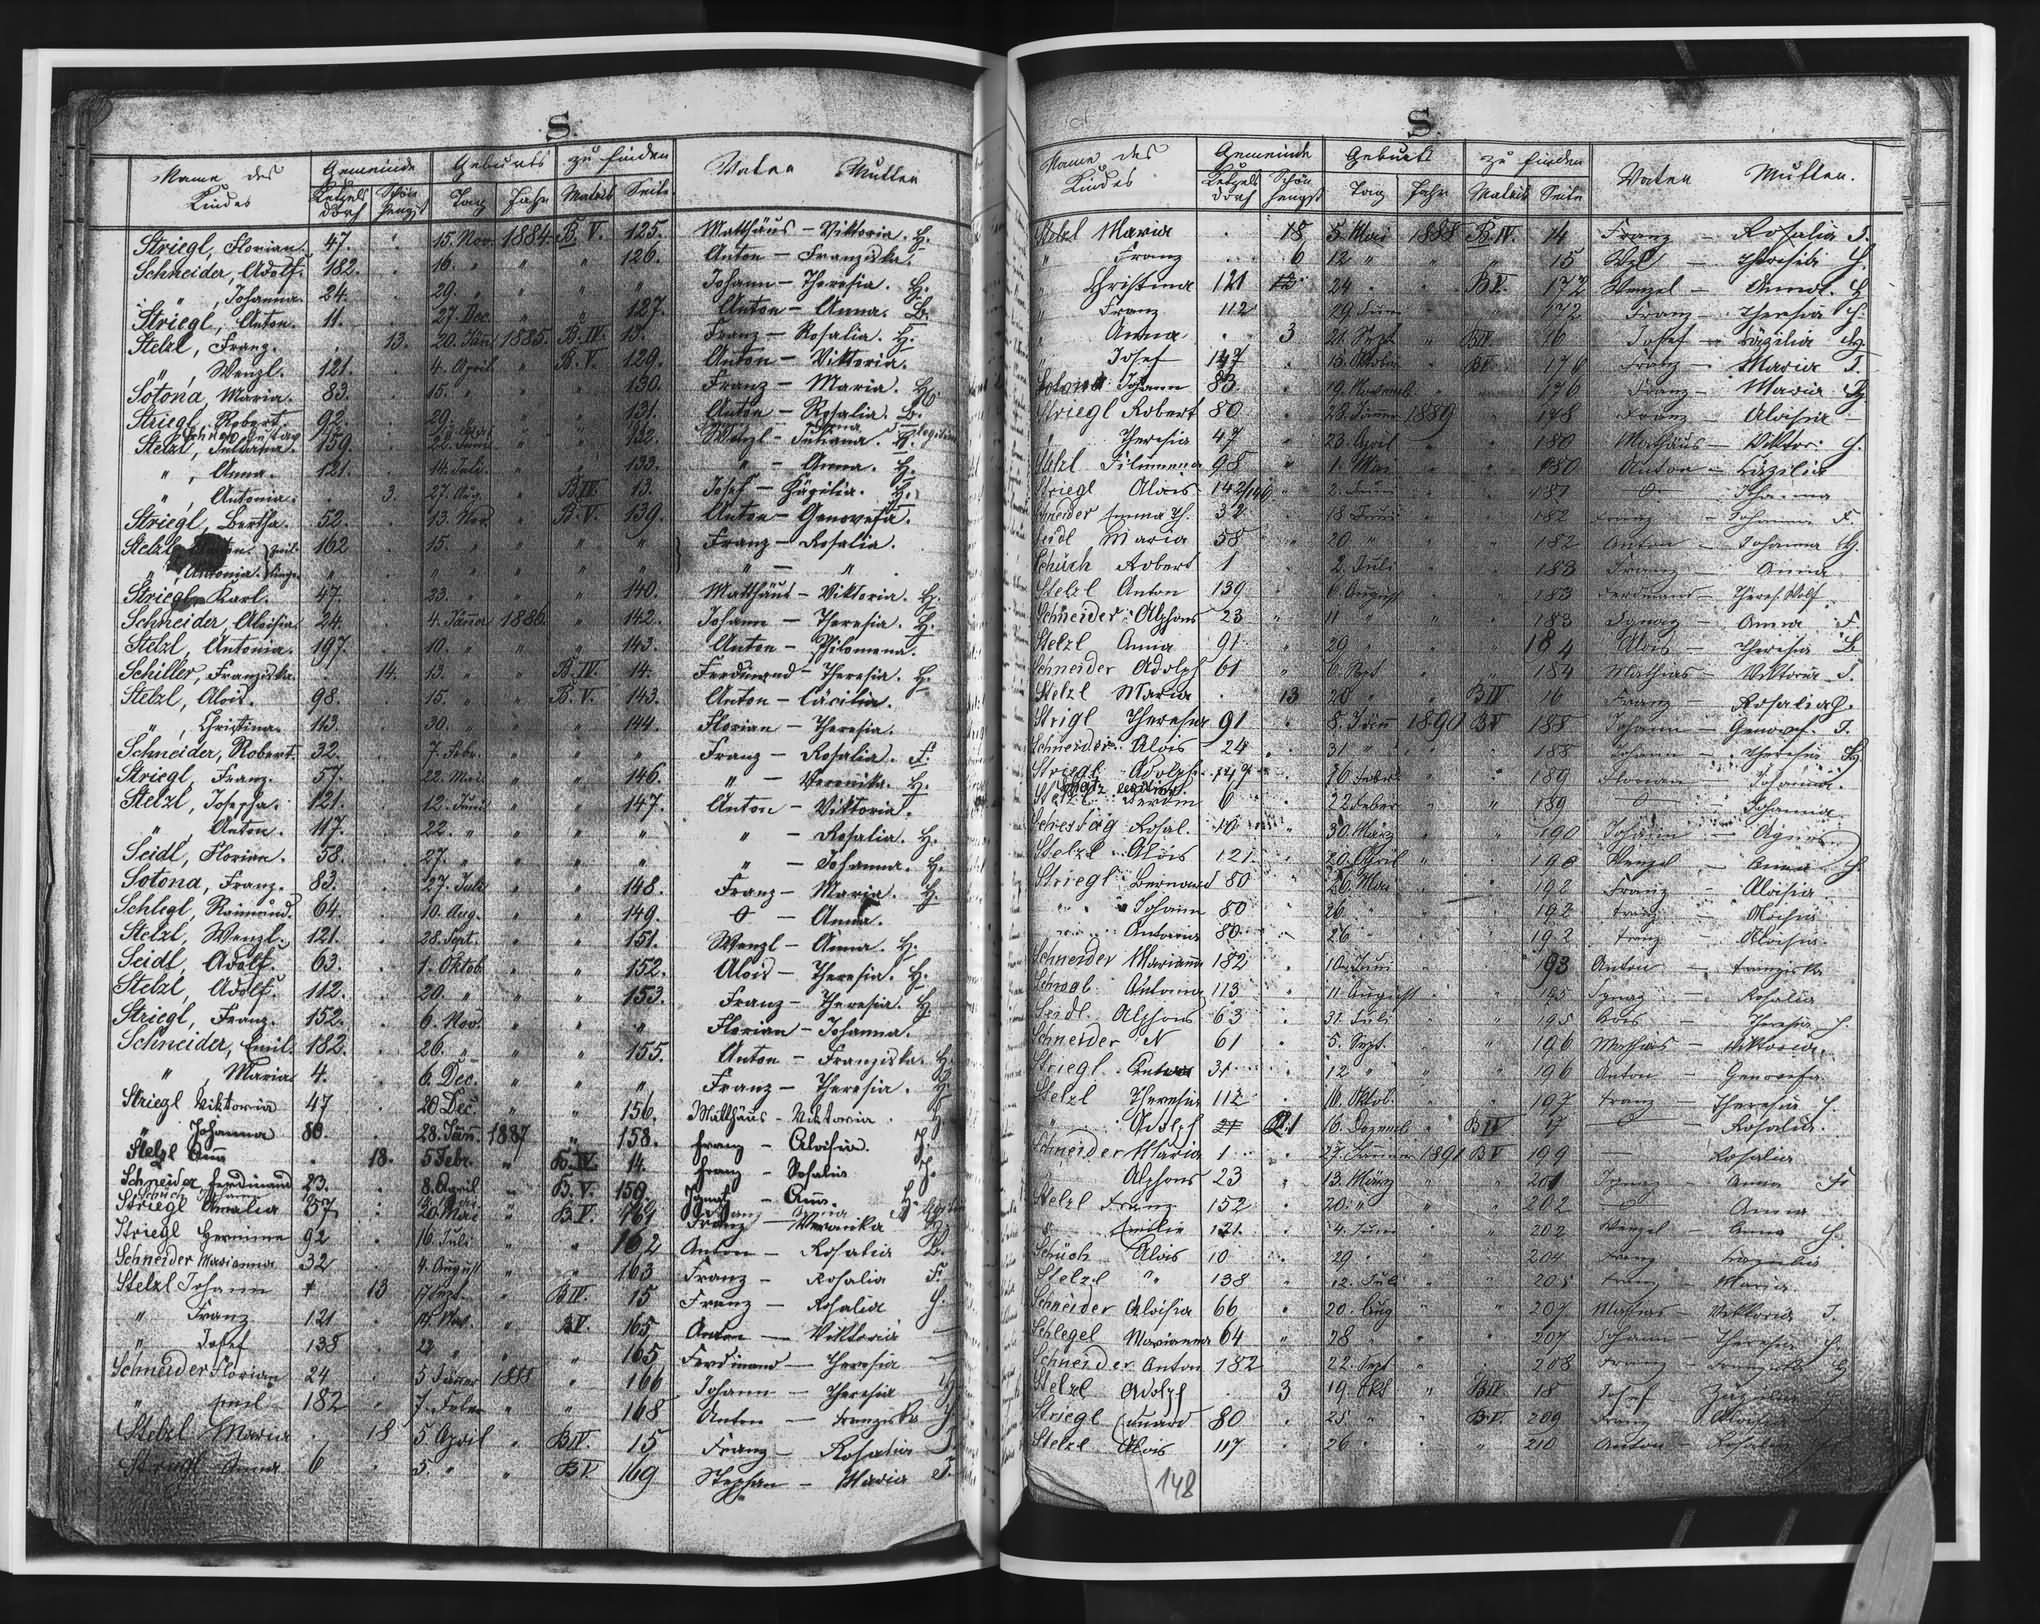 S.
Name des Kindes Gemeinde Geburts zu finden Vater Mutter
Ketzelsdorf Schönhengst Tag Jahr Matrik Seite
Striegl, Florian. 47. 15. Nov. 1884. B. V. 125. Matthäus – Viktoria. H.
Schneider, Adolf. 182. 16. " " " 126. Anton – Franziska.
" , Johanna. 24. 29. " " " " Johann – Theresia. H.
Striegl, Anton. 11. 27. Dec. " " 127. Anton – Anna. B.
Stelzl, Franz. 13. 20. Jän. 1885. B. IV. 13. Franz – Rosalia. H.
" , Wenzl. 121. 4. April. " B. V. 129. Anton – Viktoria.
Sotona, Maria. 83. 15. " " " 130. Franz – Maria. H.
Striegl, Robert. 92. 29. " " " 131. Anton – Rosalia. B.
Stelzl, Juliana. 159. 22. Juni " " 132. Wenzl – Juliana. H.
" , Anna. 121. 14. Juli. " " 133. " – Anna. H.
" , Antonia. 3. 27. Aug. " B. IV. 13. Josef – Cäcilia. H.
Striegl, Bertha. 52. 13. Nov. " B. V. 139. Anton – Genovefa.
Stelzl, 162 15. " " " " Franz – Rosalia.
" , Antonia. " " " " " " " – "
Striegl, Karl. 47. 23. " " " 140. Matthäus – Viktoria. H.
Schneider, Aloisia. 24. 4. Jänner 1886. " 142. Johann – Theresia. H.
Stelzl, Antonia. 197. 10. " " " 143. Anton – Philomena.
Schiller, Franziska. 14. 13. " " B. IV. 14. Ferdinand – Theresia. H.
Stelzl, Alois. 98. 15. " " B. V. 143. Anton – Cäcilia.
" , Christina. 113. 30. " " " 144. Florian – Theresia.
Schneider, Robert. 32. 7. Febr. " " " Franz – Rosalia. F.
Striegl, Franz. 57. 22. Mai. " " 146. " – Veronika. H.
Stelzl, Josepha. 121. 12. Juni " " 147. Anton – Viktoria.
" , Anton. 117. 22. " " " " " – Rosalia. H.
Seidl, Florian. 58. 27. " " " " " – Johanna. H.
Sotona, Franz. 83. 27. Juli " " 148. Franz – Maria. H.
Schlegl, Raimund. 64. 10. Aug. " " 149. 0 – Anna.
Stelzl, Wenzl. 121. 28. Sept. " " 151. Wenzl – Anna. H.
Seidl, Adolf. 63. 1. Oktob. " " 152. Alois – Theresia. H.
Stelzl, Adolf. 112. 20. " " " 153. Franz – Theresia. H.
Striegl, Franz. 152. 6. Nov. " " " Florian – Johanna.
Schneider, Emil. 182. 26. " " " 155. Anton – Franziska. H.
" , Maria 4. 6. Dec. " " " Franz – Theresia. H.
Striegl Viktoria 47 20 Dec. " " 156. Matthäus – Viktoria. H.
" Johanna 80. 28. Jän. 1887 " 158. Franz – Aloisia. H.
Stelzl 18. 5 Febr. " B. IV. 14. Franz – Rosalia H.
Schneider Ferdinand 23. 8. April " B. V. 159. Ignatz – Anna H.
Striegl Amalia 57 20. Mai " B V. Franz – Veronika H.
Striegl Hermine 92 16. Juli " " 162 Anton – Rosalia B.
Schneider Marianna 32 4. August " " 163 Franz – Rosalia F.
Stelzl Johann 13 " B IV. 15 Franz – Rosalia H.
" Franz 121 14. Nov. " B V. 165 Anton – Viktoria
" Josef 138 " " " 165 Ferdinand – Theresia
Schneider Florian 24 5 Jänner 1888 " 166 Johann – Theresia H
" Emil 182 7. Feber " " 168 Anton – Franziska H
Stelzl Maria 18 5. April " B IV. 15 Franz – Rosalia
Striegl Anna 6 5. " " B V. 169 Stephan – Maria F.
S.
Name des Kindes Gemeinde Geburts zu finden Vater Mutter.
Ketzelsdorf Schönhengst Tag Jahr Matrik Seite
Stelzl Maria 18 5. Mai 1888 B. IV. 14 Franz – Rosalia
" Franz 6 12 " " " 15 – Theresia H.
" Christina 121 24 " B V. 172 Wenzel – Anna. H
" Franz 112 29. Juni 172 Franz – Theresia H.
" Anna 3 21. Sept " B IV 16 Josef – Cäzilia H
" Josef 147 15. Oktober B V. 176 Franz – Maria
Sotona Johann 83 19. Novemb " 176 Franz – Maria H
Striegl Robert 80 28. Jänner 1889 " 178 Franz – Aloisia
" Theresia 47 23. April " " 180 Mathäus – Viktor. H.
Stelzl Filomena 98 1. Mai " " 180 Anton – Cäzilia
Striegl Alois 142/146 2. Juni " 181 0 –
Schneider Emma Th. 32 18 Juni " 182 Franz – F.
Seidl Maria 58 20 " " 182 Anton – Johanna H.
Schuch Robert 1 2. Juli " 183 Franz – Anna
Stelzl Anton 139 6. August " " 183 Ferdinand – Theres. Wolf
Schneider Alphons 23 11 " " " 183 Ignaz – Anna F.
Stelzl Anna 91 29 " " " 184 Alois – Theresia B
Schneider Adolph 61 6. Sept " " 184 Mathias – Viktoria
Stelzl Maria 13 20 " " B IV 16 Franz – Rosalia H.
Strigl Theresia 91 8. Jän 1890 B V 188 Johann – Genovef.
Schneider Alois 24 31. " " 188 Johann – Theresia H
Striegl Adolph 16. Feber " 189 Florian – Johanna.
6 22 Feber " " 189 0 – Johanna
Rosal. 30. März " " 190 Johann – Agnes
Stelzl Alois 121. 20. April " 190 Wenzel – Anna H
Striegl Bernard 80 26. Mai " 192 Franz – Aloisia
" Johann 80 26. " 192 Franz – Aloisia
" Antonia 80 26 " 192 Franz – Aloisia.
Schneider Marianna 182 10. Juni " 193 Anton – Franziska
Schwab Antonia 113 11 August " 195 Ignaz – Rosalia
Seidl Alphons 63 31. Juli " " 195 Alois – Theresia H.
Schneider N 61 5. Sept. " " 196 Mathias – Viktoria
Striegl 31 12 " " " 196 Anton – Genovefa
Stelzl Theresia 112 16. Oktob. " " 197 Franz – Theresia H.
" Adolf 21 16. Dezemb " B IV 17 0 – Rosalia.
Schneider Maria 1 27. Jänner 1891 B V 199 — Rosalia
" Alphons 23 13. März " " 201 Ignaz – Anna
Stelzl Franz 152 20. " " " 202 0 – Anna
" Emilie 121. 4. Juni " " 202 Wenzel – Anna H.
Schuch Alois 10 29 " " 204 Franz –
Stelzl " 138 12. Juli " " 205 Franz – Maria
Schneider Aloisia 66 20. Aug " " 207 Mathias – Viktoria
Schlegel Marianna 64 28 " " 207 Johann – Theresia H.
Schneider Anton 182 22. Sept " 208 Franz – Franziska H
Stelzl Adolph 3 19. Okt " B IV 18 Josef –
Striegl Eduard 80 25 " " B V. 209 Franz – Aloisia
Stelzl Alois 117 26 " " " 210 Anton – Rosalia
148